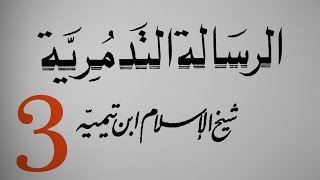 الرسالة التدمُريَّة
شيخ الإسلام ابن تيميه
3